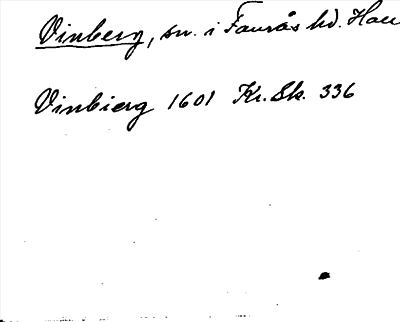 Vinberg, sn. i Faurås hd. Hall
Vinbierg 1601 Kr. Sk. 336